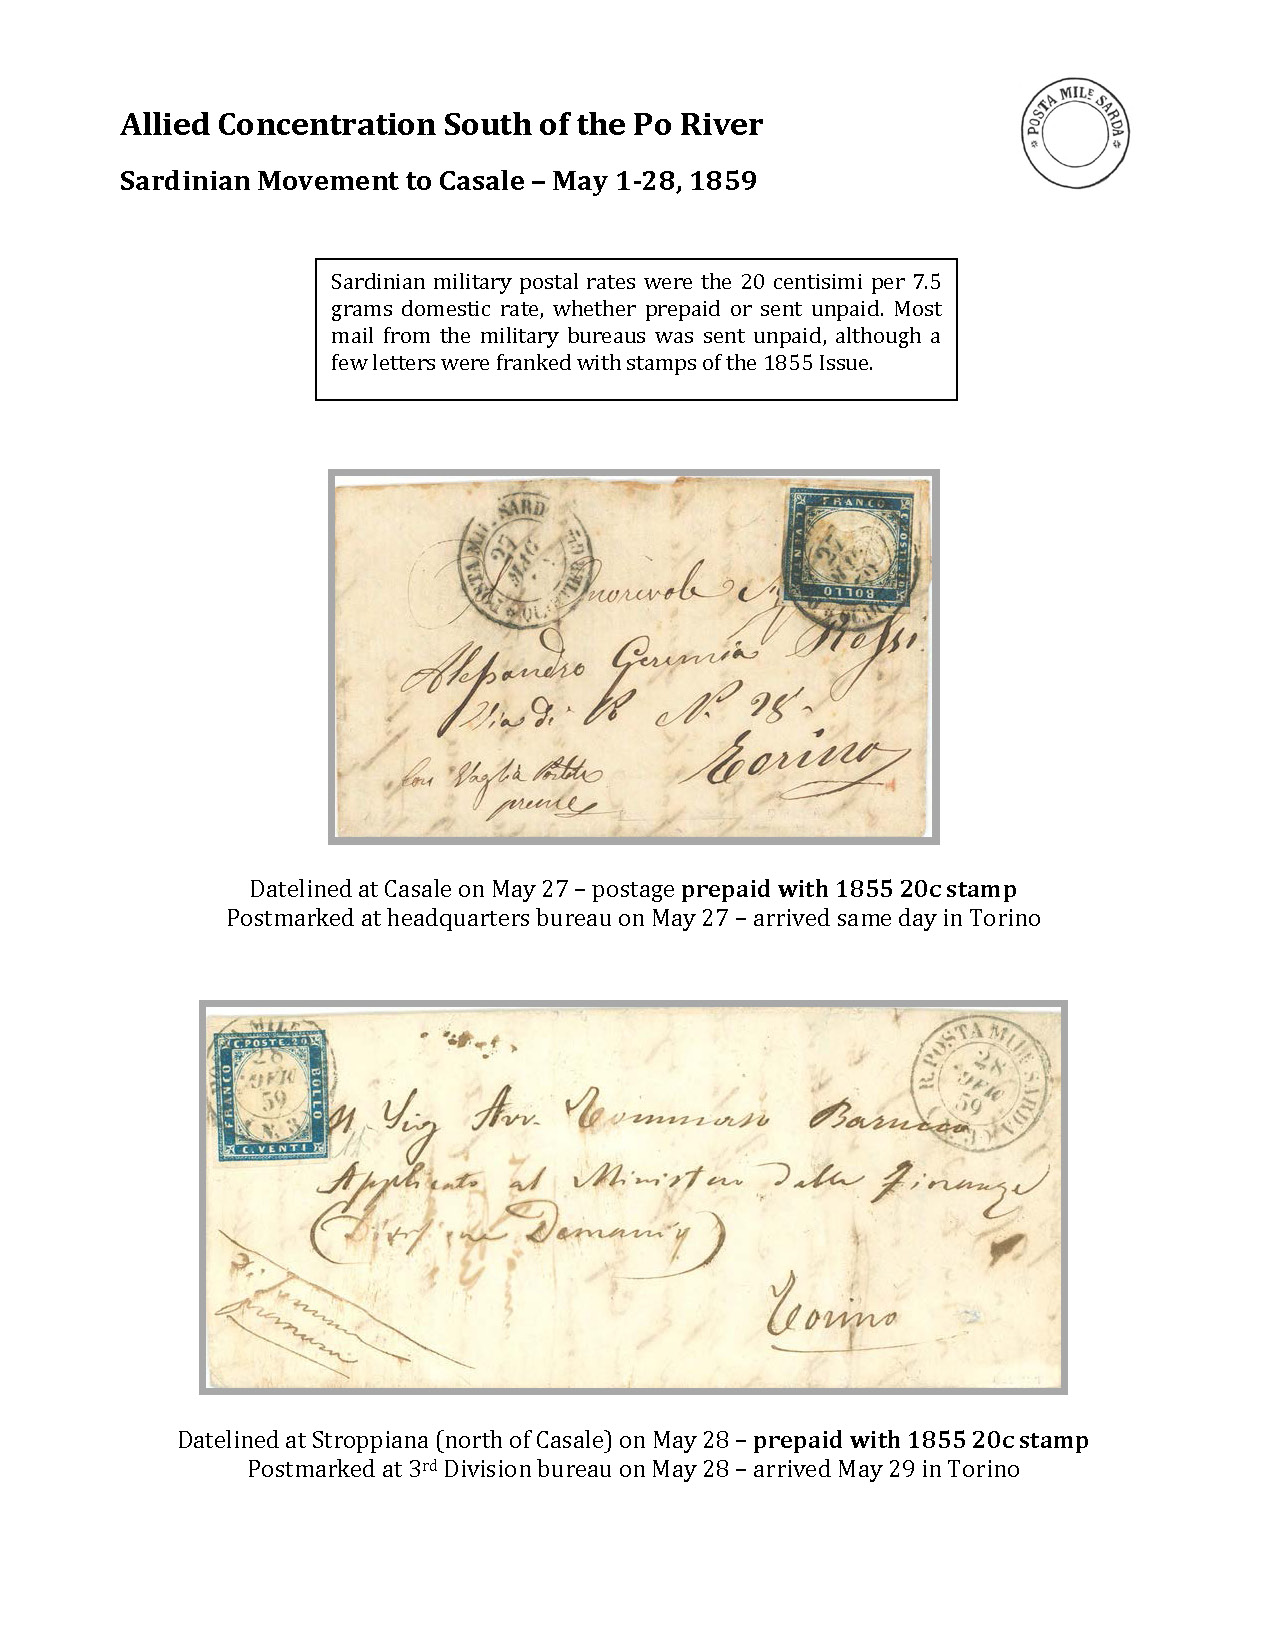 Allied Concentration South of the Po River
POSTA MILE SARDA
Sardinian Movement to Casale – May 1-28, 1859
Sardinian military postal rates were the 20 centisimi per 7.5
grams domestic rate, whether prepaid or sent unpaid. Most
mail from the military bureaus was sent unpaid, although a
few letters were franked with stamps of the 1855 Issue.
POSTA MIL. SARD
27
MAG
FRANCO
C. POSTE. 20
BOLLO
C. VENTI
27
MAG
59
norivole
Alessandro Geremia Rossi
Via di Po N. 28
Torino
Con Vaglia
Datelined at Casale on May 27 – postage prepaid with 1855 20c stamp
Postmarked at headquarters bureau on May 27 – arrived same day in Torino
MILE
C. POSTE. 20
FRANCO
BOLLO
C. VENTI
28
59
N. 3
R. POSTA MILE SARDA
28
59
Sig Avv. Tommaso Barucco
Applicato al Ministero delle Finanze
(Divisione Demanio)
Torino
Datelined at Stroppiana (north of Casale) on May 28 – prepaid with 1855 20c stamp
Postmarked at 3rd Division bureau on May 28 – arrived May 29 in Torino